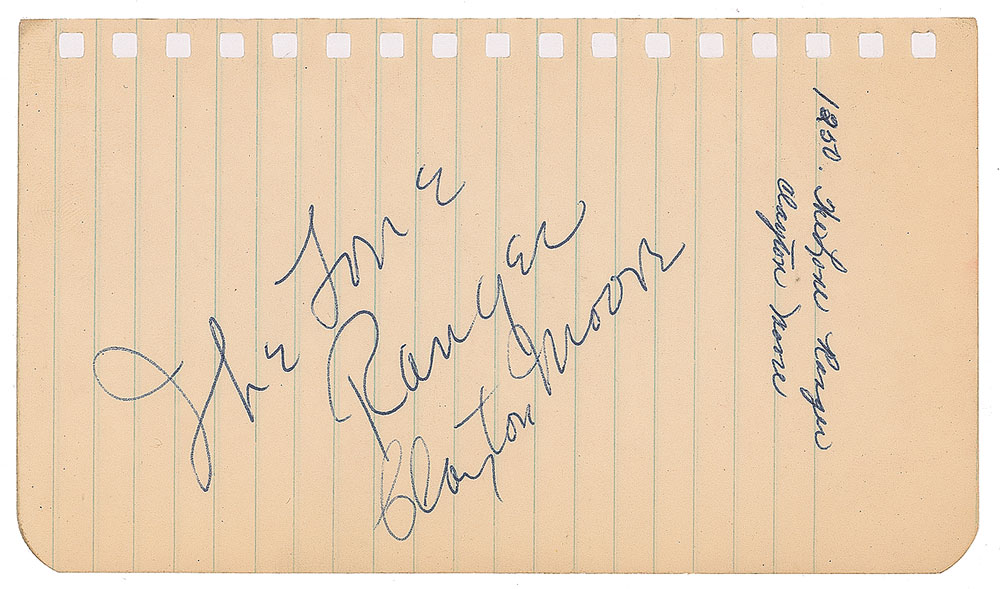 The Lone
Ranger
Clayton Moore
1250. The Lone Ranger
Clayton Moore